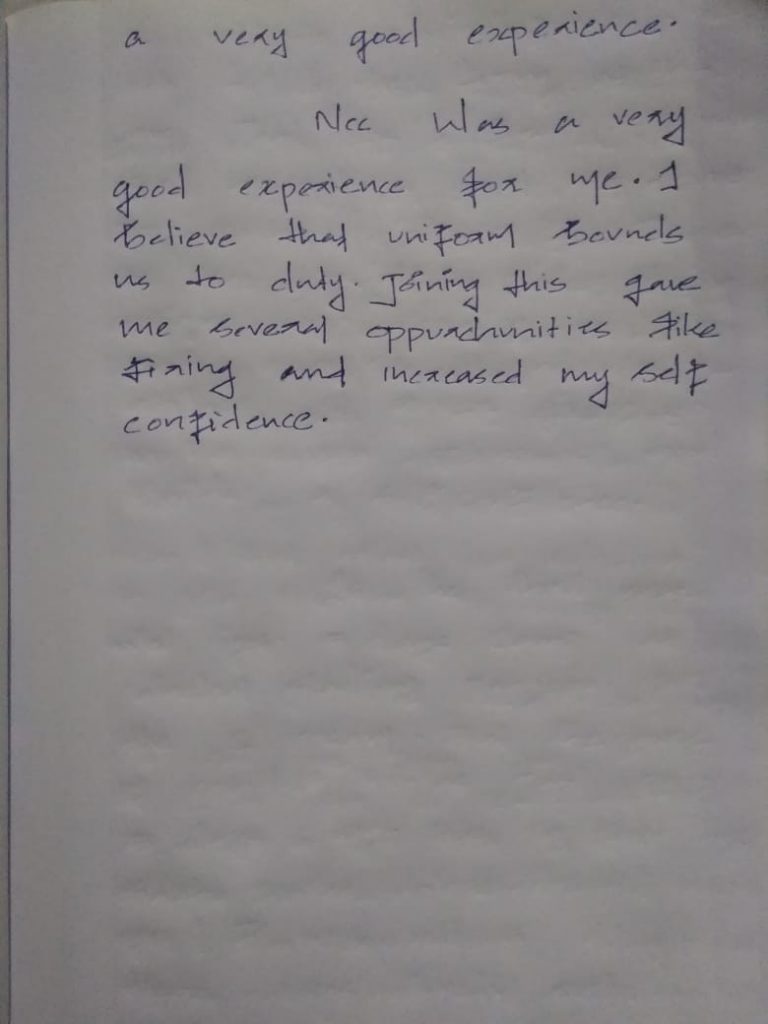 a very good experience.
Ncc Was a very
good experience for me. I
believe that uniform bounds
us to duty. Joining this gave
me several oppurtunities like
firing and increased my self
confidence.